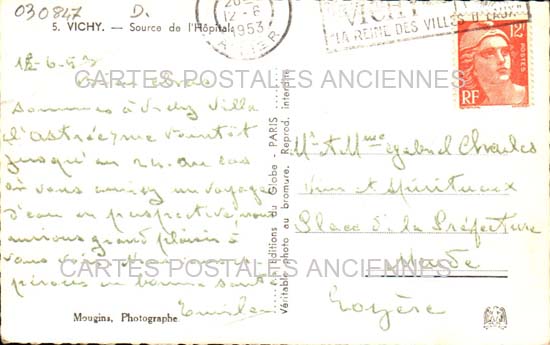 030847 D.
5. VICHY. — Source de l'Hôpital
12-6 1953
VICHY
LA REINE DES VILLES D'EAUX
12F
RF
CARTES POSTALES ANCIENNES
Sommes à Vichy Villa
jusqu'au 24. au cas
où vous auriez un voyage
d'eau en perspective nous
aurions grand plaisir à
vous voir
en bonne santé
Mougins, Photographe
Editions du Globe - PARIS
Véritable photo au bromure. Reprod. interdite
Mr & Mme Gabriel Charles
Vins et Spiritueux
Place de la Préfecture
Mende
Lozère
CARTES POSTALES ANCIENNES